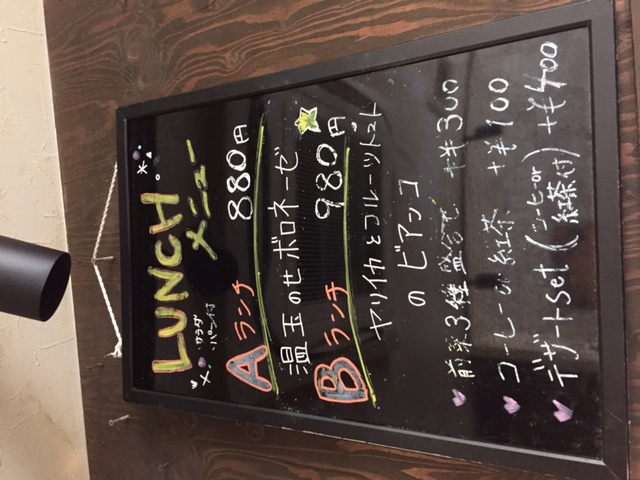 LUNCH
メニュー
サラダ
パン付
Aランチ 880円
温玉のせボロネーゼ
Bランチ 980円
ヤリイカとフルーツトマト
のビアンコ
前菜3種盛合せ +¥300
コーヒーor紅茶 +¥100
デザートset(コーヒーor紅茶付) +¥400